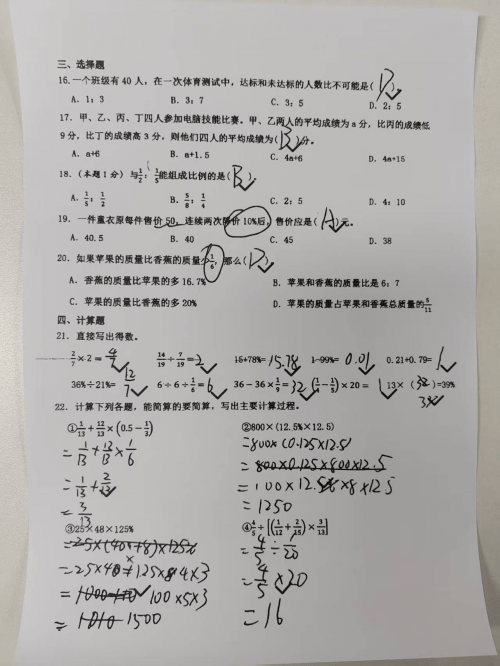 三、选择题
16.一个班级有40人，在一次体育测试中，达标和未达标的人数比不可能是( D )
A. 1：3 B. 3：7 C. 3：5 D. 2：5
17. 甲、乙、丙、丁四人参加电脑技能比赛。甲、乙两人的平均成绩为a分，比丙的成绩低
9分，比丁的成绩高3分，则他们四人的平均成绩为( B )分。
A. a+6 B. a+1.5 C. 4a+6 D. 4a+15
18.（本题1分）与1/2：1/5能组成比例的是( B )
A. 1/5：1/2 B. 5/8：1/4 C. 2：5 D. 4：10
19. 一件童衣原每件售价50，连续两次降价10%后，售价应是( A )元。
A. 40.5 B. 40 C. 45 D. 38
20. 如果苹果的质量比香蕉的质量少1/6，那么( D )
A. 香蕉的质量比苹果的多16.7% B. 苹果和香蕉的质量比是6：7
C. 苹果的质量比香蕉的多20% D. 苹果的质量占苹果和香蕉总质量的5/11
四、计算题
21. 直接写出得数。
2/7×2= 4/7 14/19÷7/19= 2 15+78%= 15.78 1-99%= 0.01 0.21+0.79= 1
36%÷21%= 12/7 6÷6÷1/6= 6 36－36×1/9= 32 (1/4-1/5)×20= 1 13×( 3% )=39%
22. 计算下列各题，能简算的要简算，写出主要计算过程。
①1/13+12/13×(0.5-1/3) ②800×(12.5%×12.5)
=1/13+12/13×1/6 =800×(0.125×12.5)
=800×0.125×800×12.5
=1/13+2/13 =100×12.5
=3/13 =1250
③25×48×125% ④4/5÷[(1/12+2/15)×3/13]
=25×(40+8)×125% =4/5÷1/20
=4/5×20
=1010 1500 =16